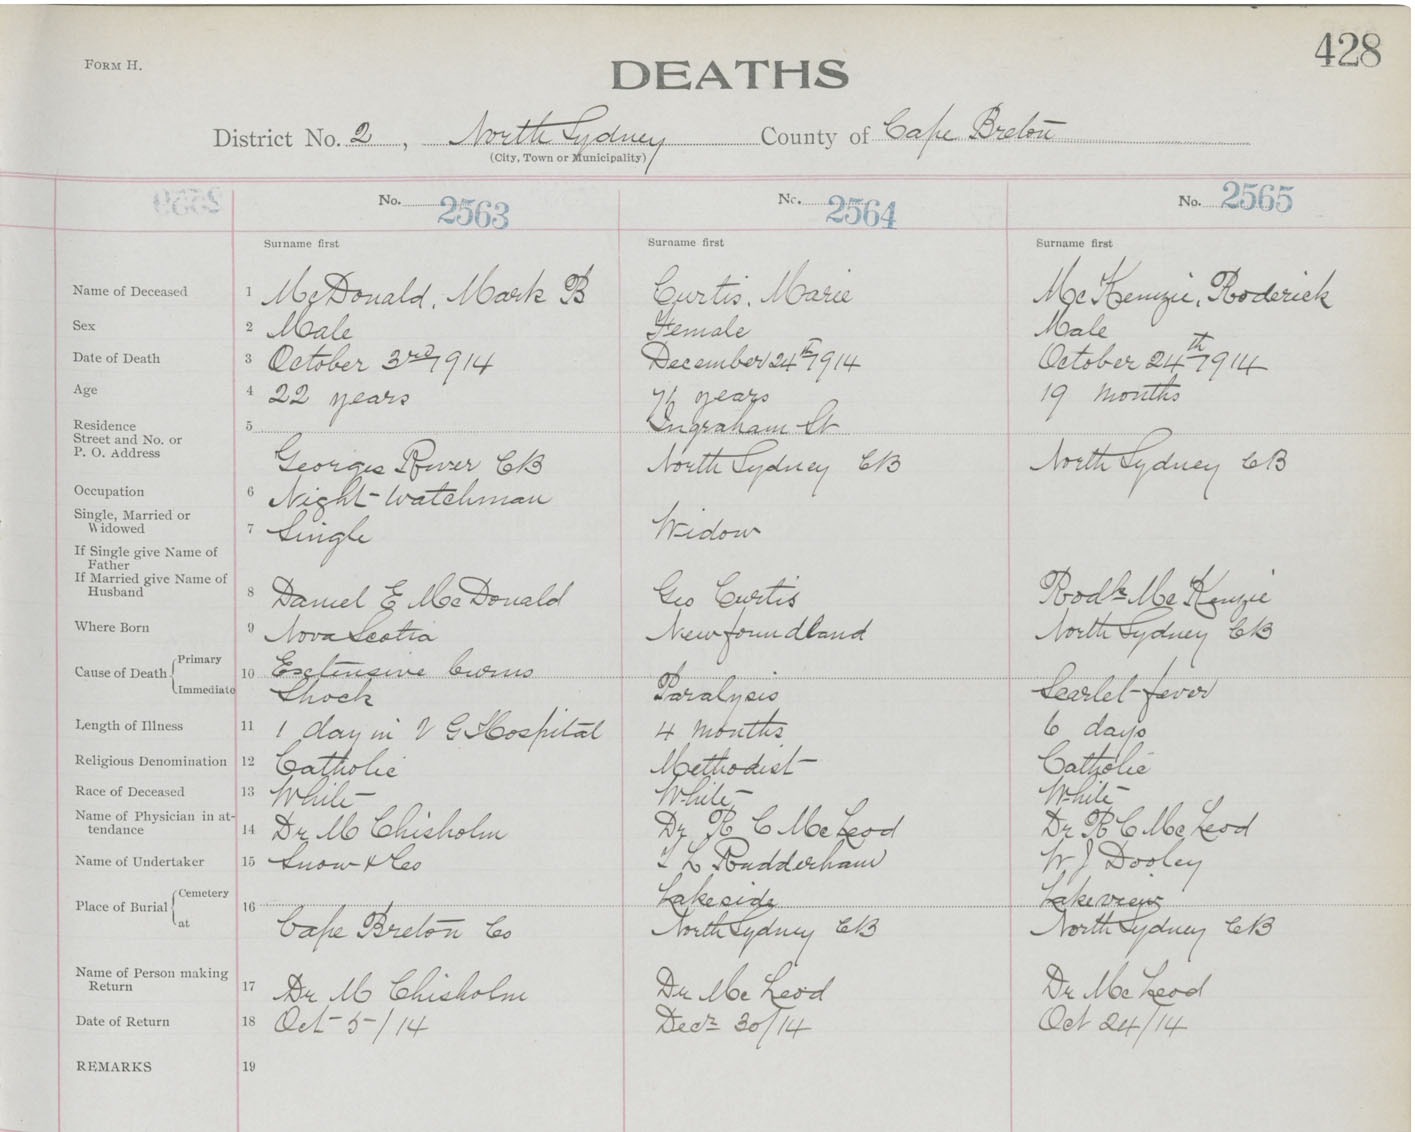 428
FORM H.
DEATHS
District No. 2, North Sydney County of Cape Breton
(City, Town or Municipality)
No. 2563 No. 2564 No. 2565
Surname first Surname first Surname first
Name of Deceased 1 McDonald, Mark B Curtis, Marie McKenzie, Roderick
Sex 2 Male Female Male
Date of Death 3 October 3rd 1914 December 24th 1914 October 24th 1914
Age 4 22 years years 19 months
Residence 5 Ingraham St
Street and No. or
P. O. Address Georges River CB North Sydney CB North Sydney CB
Occupation 6 Night-Watchman
Single, Married or
Widowed 7 Single Widow
If Single give Name of
Father
If Married give Name of
Husband 8 Daniel E McDonald Geo Curtis Rodk McKenzie
Where Born 9 Nova Scotia Newfoundland North Sydney CB
Cause of Death Primary 10 Exctensive burns
Immediate Shock Paralysis Scarlet-fever
Length of Illness 11 1 day in V G Hospital 4 months 6 days
Religious Denomination 12 Catholic Methodist Catholic
Race of Deceased 13 White White White
Name of Physician in at-
tendance 14 Dr M Chisholm Dr R C McLeod Dr R C McLeod
Name of Undertaker 15 Snow & Co L Rudderham W J Dooley
Place of Burial Cemetery 16 Lakeside Lakeview
at Cape Breton Co North Sydney CB North Sydney CB
Name of Person making
Return 17 Dr M Chisholm Dr McLeod Dr McLeod
Date of Return 18 Oct 5/14 Decr 30/14 Oct 24/14
REMARKS 19